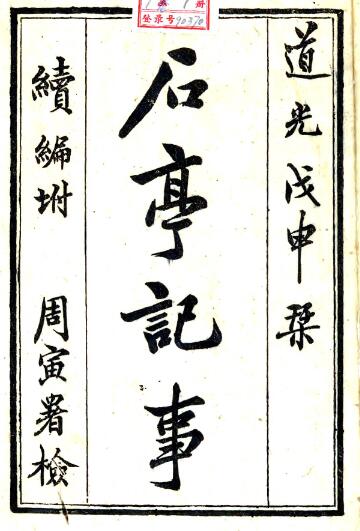 道光戊申栞
石亭記事
續編坿 周寅署檢
册
登录号90370